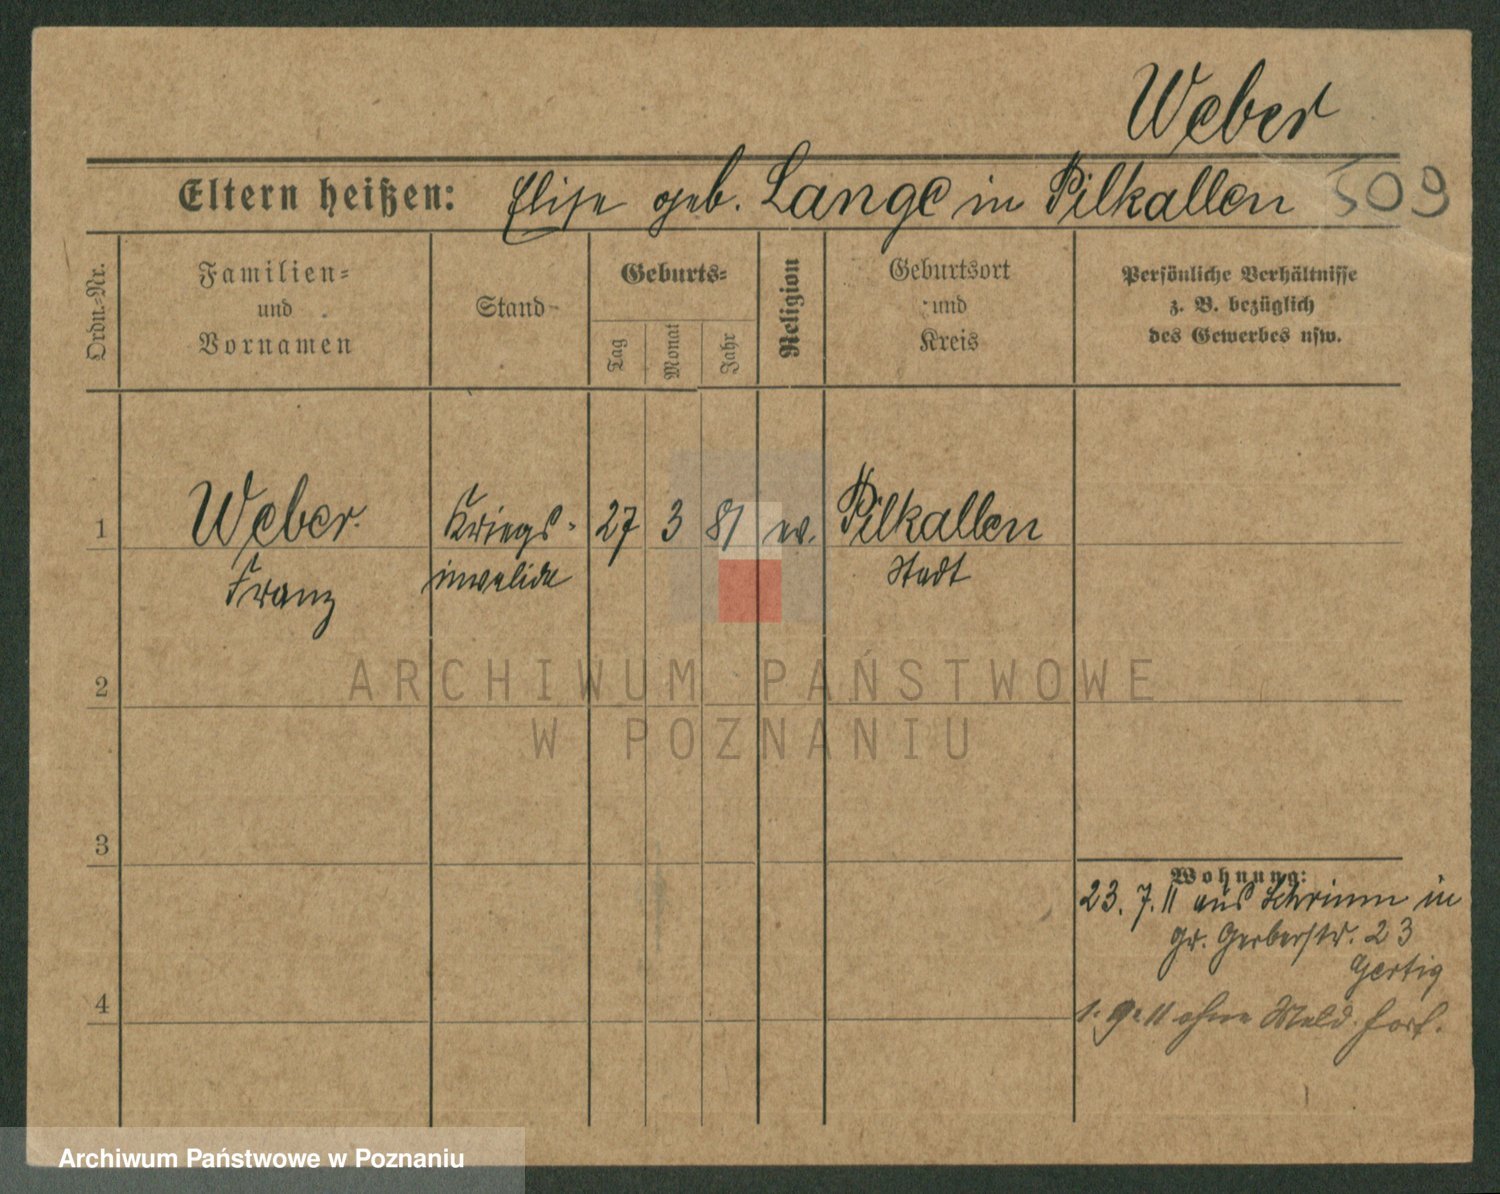 Weber
Eltern heißen: Elise geb. Lange in Pilkallen 509
Ordn.-Nr.
Familien-
und
Vornamen
Stand
Geburts-
Tag
Monat
Jahr
Religion
Geburtsort
und
Kreis
Persönliche Verhältnisse
z. B. bezüglich
des Gewerbes usw.
1 Weber Kriegs- 27 3 81 ev. Pilkallen
Franz invalide Stadt
2
3
4
Wohnung:
23. 7. 11 aus Schrimm in
gr. Gerberstr. 23
Gertig
1. 9. 11 ohne Meld. fort.
ARCHIWUM PAŃSTWOWE
W POZNANIU
Archiwum Państwowe w Poznaniu